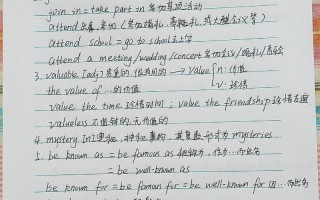 join in = take part in 参加某项活动
attend 出席,参加(参加婚礼,葬礼,或大型会议等)
attend school = go to school 去上学
attend a meeting/wedding/concert 参加会议/婚礼/音乐会
3. valuable [adj] 贵重的,很有用的 → value { n: 价值
v: 珍惜
the value of ... 的价值
value the time 珍惜时间; value the friendship 珍惜友谊
valueless 不值钱的,无价值的
4. mystery [n] 事物,其复数形式为 mysteries
5. be known as = be famous as 作为…而出名
= be well-known as
be known for = be famous for = be well-known for 因…而出名